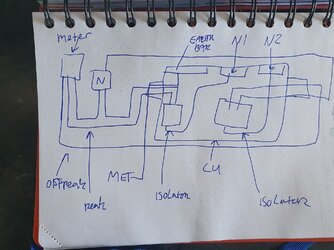 meter
EARTH
N1
N2
N
MET
CU
OFFpeak
peak
ISOlator
ISOLator